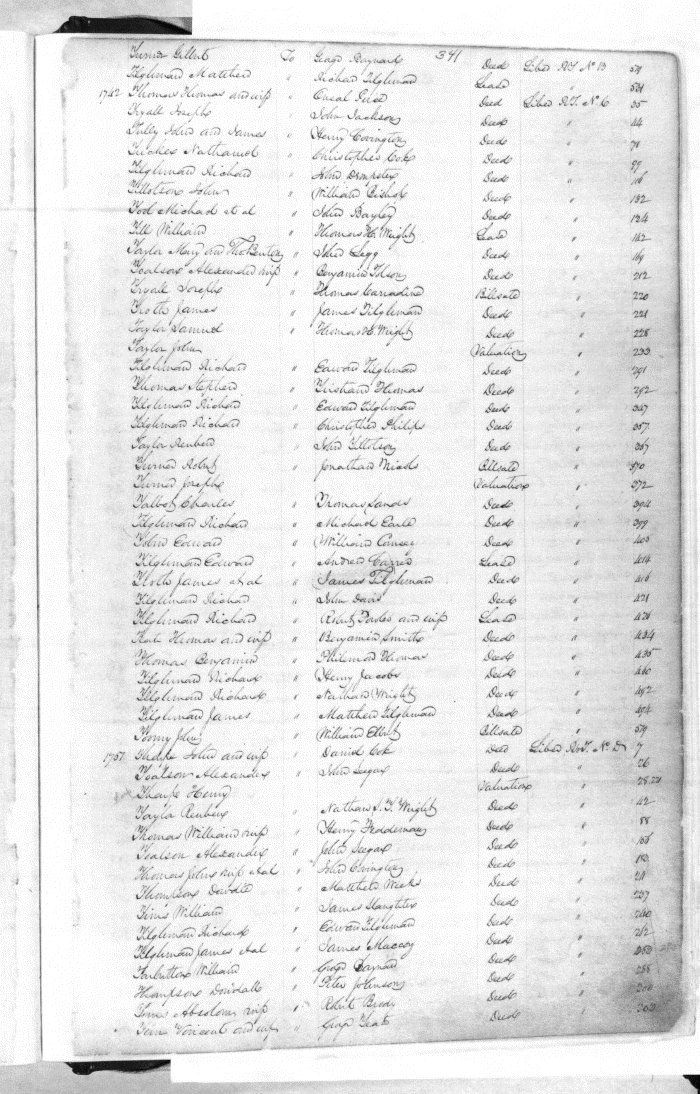 341
Turner Gilbert To George Baynard Deed Liber RT No B
Tilghman Matthew " Richard Tilghman Lease " 501
1742 Thomas Thomas and wife " Oneal Price Deed Liber RT No C 35
Tryall Joseph " John Jackson Deed " 44
Tully John and James " Henry Covington Deed " 71
Tucker Nathaniel " Christopher Cox Deed "
Tilghman Richard " John Dempster Deed " 116
Tillotson John " William Bishop Deed " 132
Tod Michael et al " John Bayley Deed " 134
Till William " Thomas H. Wright Lease " 162
Taylor Mary and Thos Benton " John Legg Deed " 169
Toalson Alexander wife " Benjamin Tolson Deed " 212
Tryall Joseph " Thomas Carradine Billsale " 220
Troth James " James Tilghman Deed " 221
Taylor Samuel " Thomas H. Wright Deed " 228
Taylor John Valuation " 233
Tilghman Richard " Edward Tilghman Deed " 291
Thomas Stephen " Tristram Thomas Deed " 292
Tilghman Richard " Edward Tilghman Deed " 347
Tilghman Richard " Christopher Philips Deed " 357
Taylor Reuben " John Tillotson Deed " 367
Turner Robert " Jonathan Nicols Billsale " 370
Turner Joseph Valuation " 372
Talbot Charles " Thomas Sands Deed " 394
Tilghman Richard " Michael Earle Deed " 399
Tolin Edward " William Comegy Deed " 403
Tilghman Edward " Andrew Lease " 414
Troth James et al " James Tilghman Deed " 416
Tilghman Richard " John Davis Deed " 421
Tilghman Richard " Robert and wife Lease " 426
Tate Thomas and wife " Benjamin Smith Deed " 434
Thomas Benjamin " Philemon Thomas Deed " 435
Tilghman Richard " Henry Jacobs Deed " 440
Tilghman Richard " Nathan Wright Deed " 492
Tilghman James " Matthew Tilghman Deed " 494
Toomy John " William Elbert Billsale "
1751 Tharpe John and wife " Daniel Cox Deed Liber RT No D 7
Toalson Alexander " John Seegar Deed " 26
Tharpe Henry Valuation " 28.29
Taylor Reuben " Nathan S. T. Wright Deed " 42
Thomas William wife " Henry Feddeman Deed " 88
Toalson Alexander " John Seegar Deed " 156
Thomas John wife et al " John Deed " 183
Thompson Dowdall " Matthew Weeks Deed " 211
Tims William " James Slaughter Deed " 237
Tilghman Richard " Edward Tilghman Deed " 240
Tilghman James et al " James Maccoy Deed " 242
Tarbutton William " George Baynard Deed " 250
Thompson Dowdall " Peter Johnson Deed " 258
Tims Absolom wife " Robert Deed "
Tear Vincent and wife " George Deed " 263